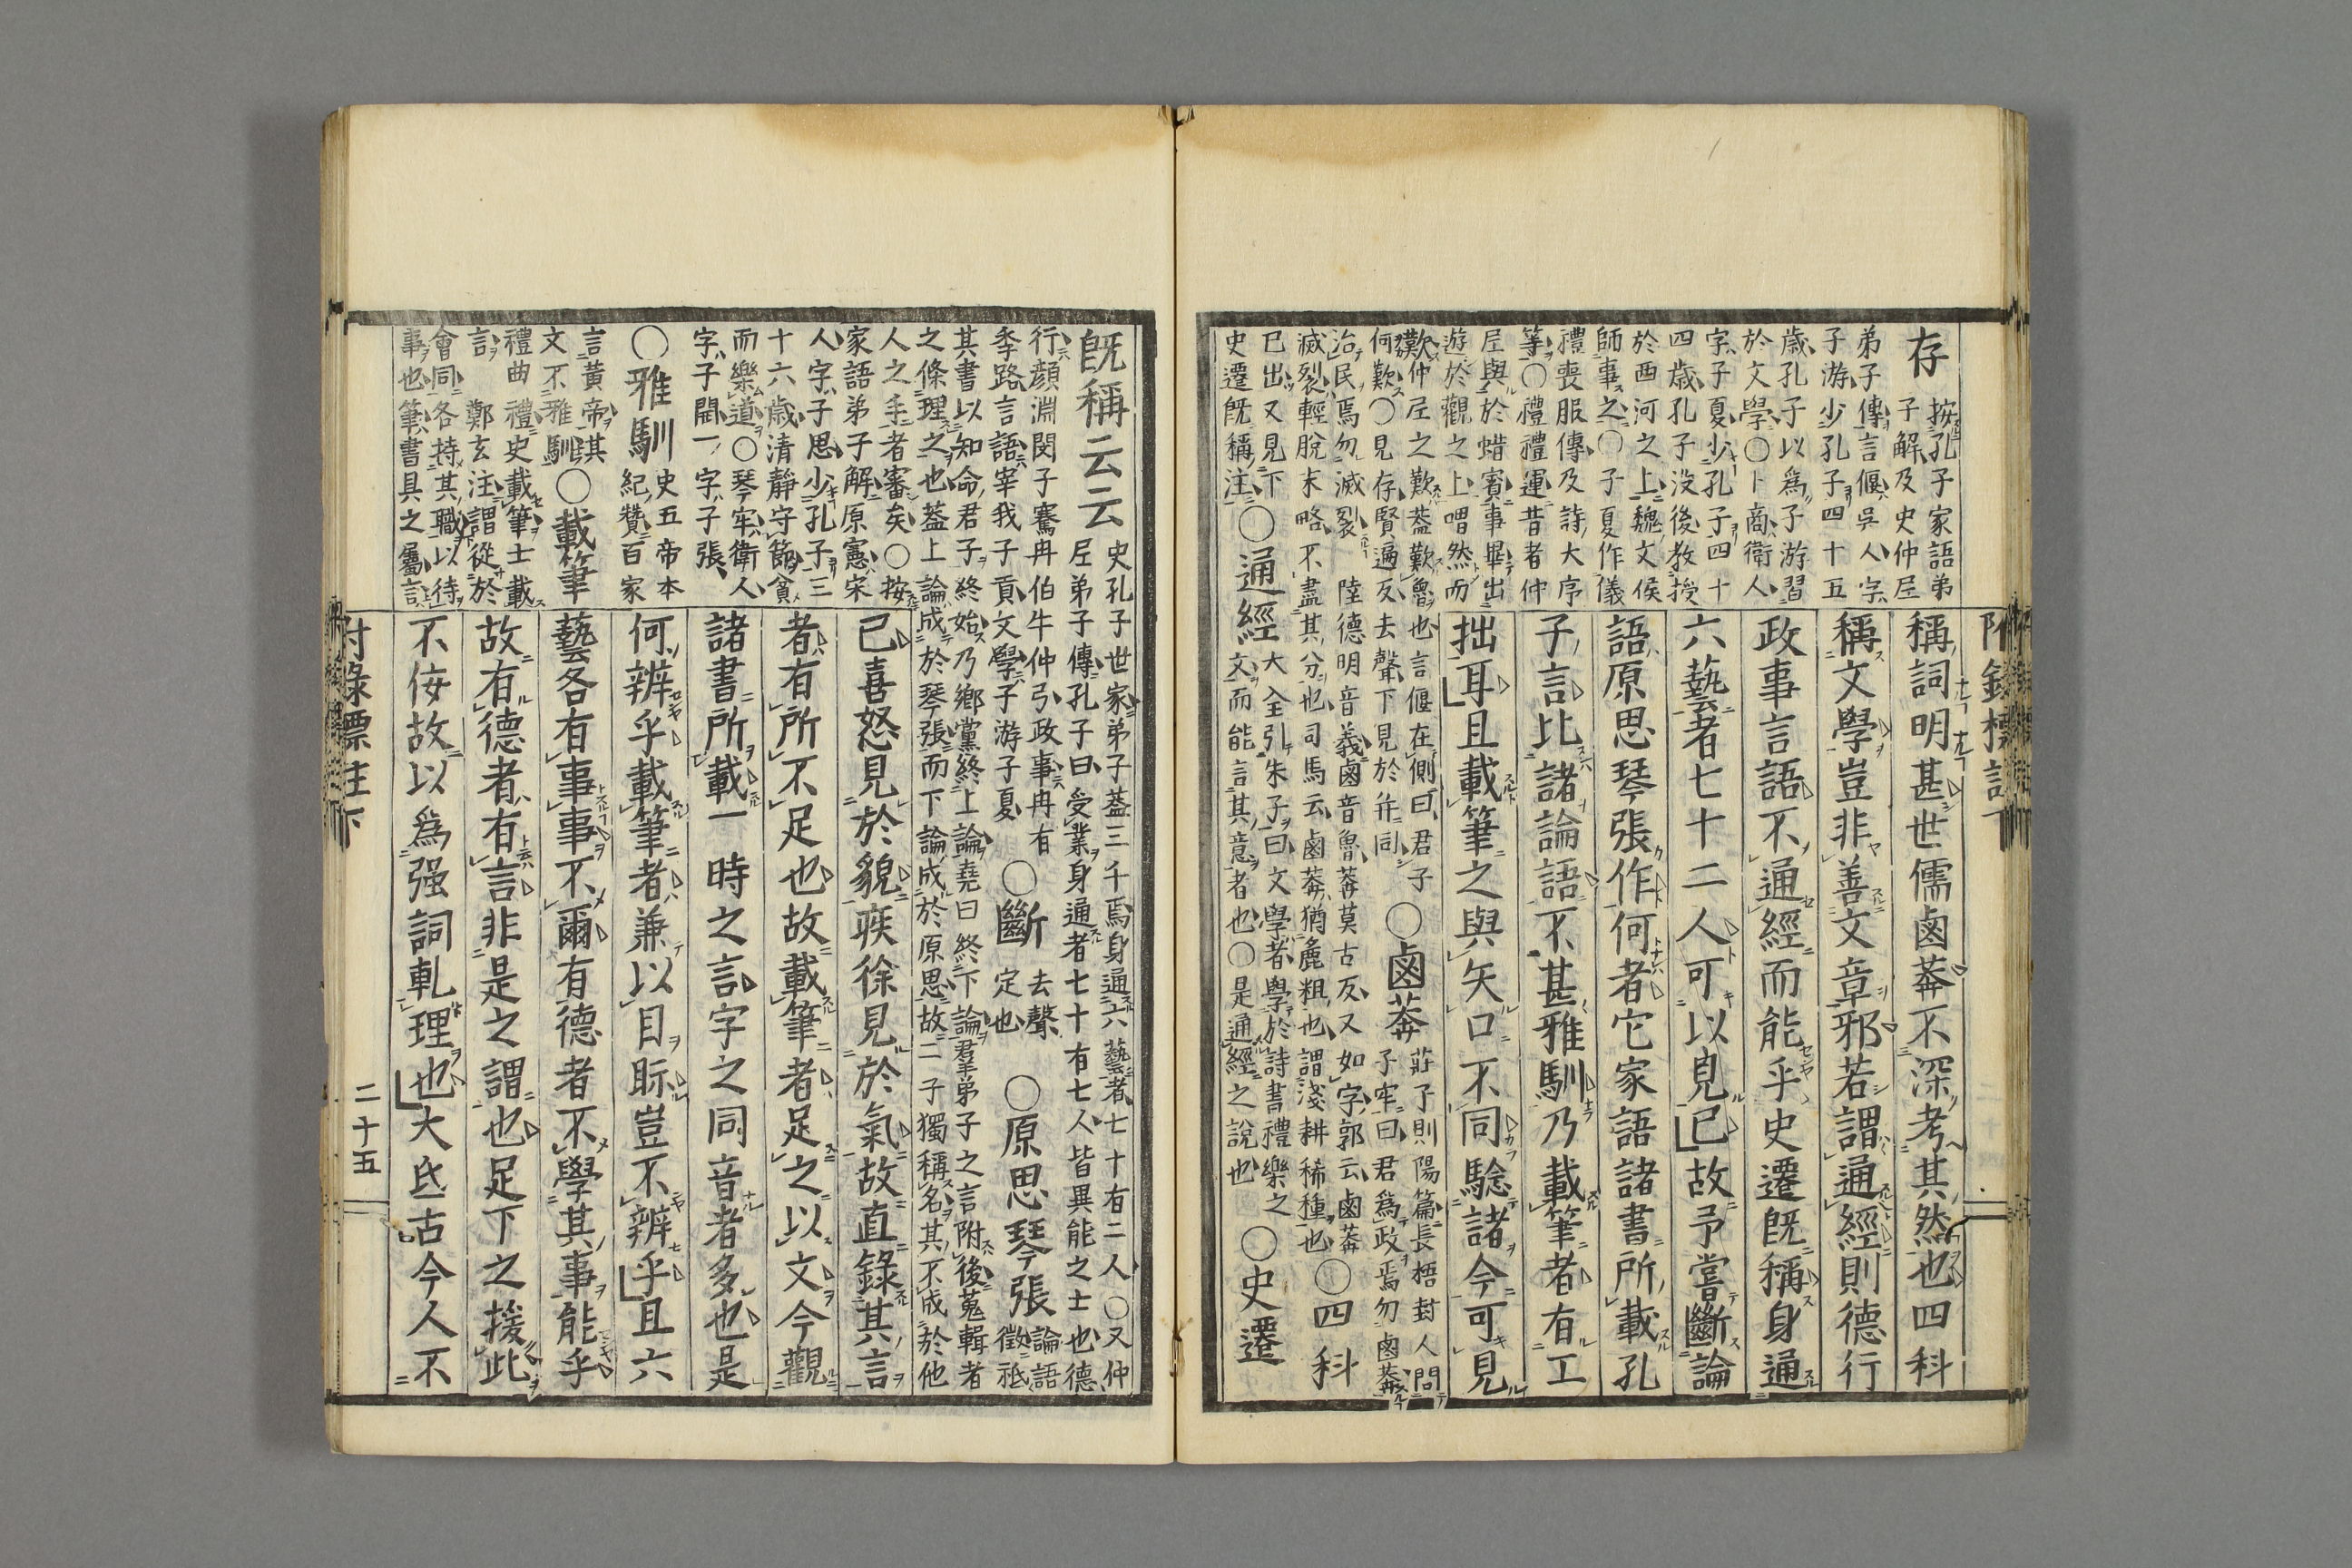 附錄標註下
存
按孔子家語弟
子解及史仲尼
弟子傳言偃吳人字
子游少孔子四十五
歳孔子以爲子游習
於文學○卜商衛人
字子夏少孔子四十
四歳孔子没後教授
於西河之上魏文侯
師事之○子夏作儀
禮喪服傳及詩大序
等○禮禮運昔者仲
尼與於蜡賓事畢出
遊於觀之上喟然而
歎仲尼之歎蓋歎魯也言偃在側曰君子
何歎○見存賢遍反去聲下見於并同
○鹵莽
莊子則陽篇長梧封人問
子牢曰君爲政焉勿鹵莽
治民焉勿滅裂 陸德明音義鹵音魯莽莫古反又如字郭云鹵莽
滅裂輕脫末略不盡其分也司馬云鹵莽猶麁粗也謂淺耕稀種也
○四科
已出又見下
史遷旣稱注
○通經
大全引朱子曰文學者學於詩書禮樂之
文而能言其意者也○是通經之說也
○史遷
稱詞明甚世儒鹵莽不深考其然也四科
稱文學豈非善文章邪若謂通經則德行
政事言語不通經而能乎史遷旣稱身通
六藝者七十二人可以見已故予嘗斷論
語原思琴張作何者它家語諸書所載孔
子言比諸論語不甚雅馴乃載筆者有工
拙耳且載筆之與矢口不同驗諸今可見
旣稱云云
史孔子世家弟子蓋三千焉身通六藝者七十有二人○又仲
尼弟子傳孔子曰受業身通者七十有七人皆異能之士也德
行顏淵閔子騫冉伯牛仲弓政事冉有
季路言語宰我子貢文學子游子夏
○斷
去聲
定也
○原思琴張
論語
徵祗
其書以知命君子終始乃鄉黨終上論堯曰終下論羣弟子之言附後蒐輯者
之條理之也蓋上論成於琴張而下論成於原思故二子獨稱名其不成於他
人之手者審矣○按
家語弟子解原憲宋
人字子思少孔子三
十六歳清靜守節貧
而樂道○琴牢衛人
字子開一字子張
○雅馴
史五帝本
紀贊百家
言黃帝其
文不雅馴
○載筆
禮曲禮史載筆士載
言 鄭玄注謂從於
會同各持其職以待
事也筆書具之屬言
已喜怒見於貌疾徐見於氣故直錄其言
者有所不足也故載筆者足之以文今觀
諸書所載一時之言字之同音者多也是
何辨乎載筆者兼以目眎豈不辨乎且六
藝各有事事不爾有德者不學其事能乎
故有德者有言非是之謂也足下之援此
不佞故以爲强詞軋理也大氐古今人不
付錄標註下
二十五